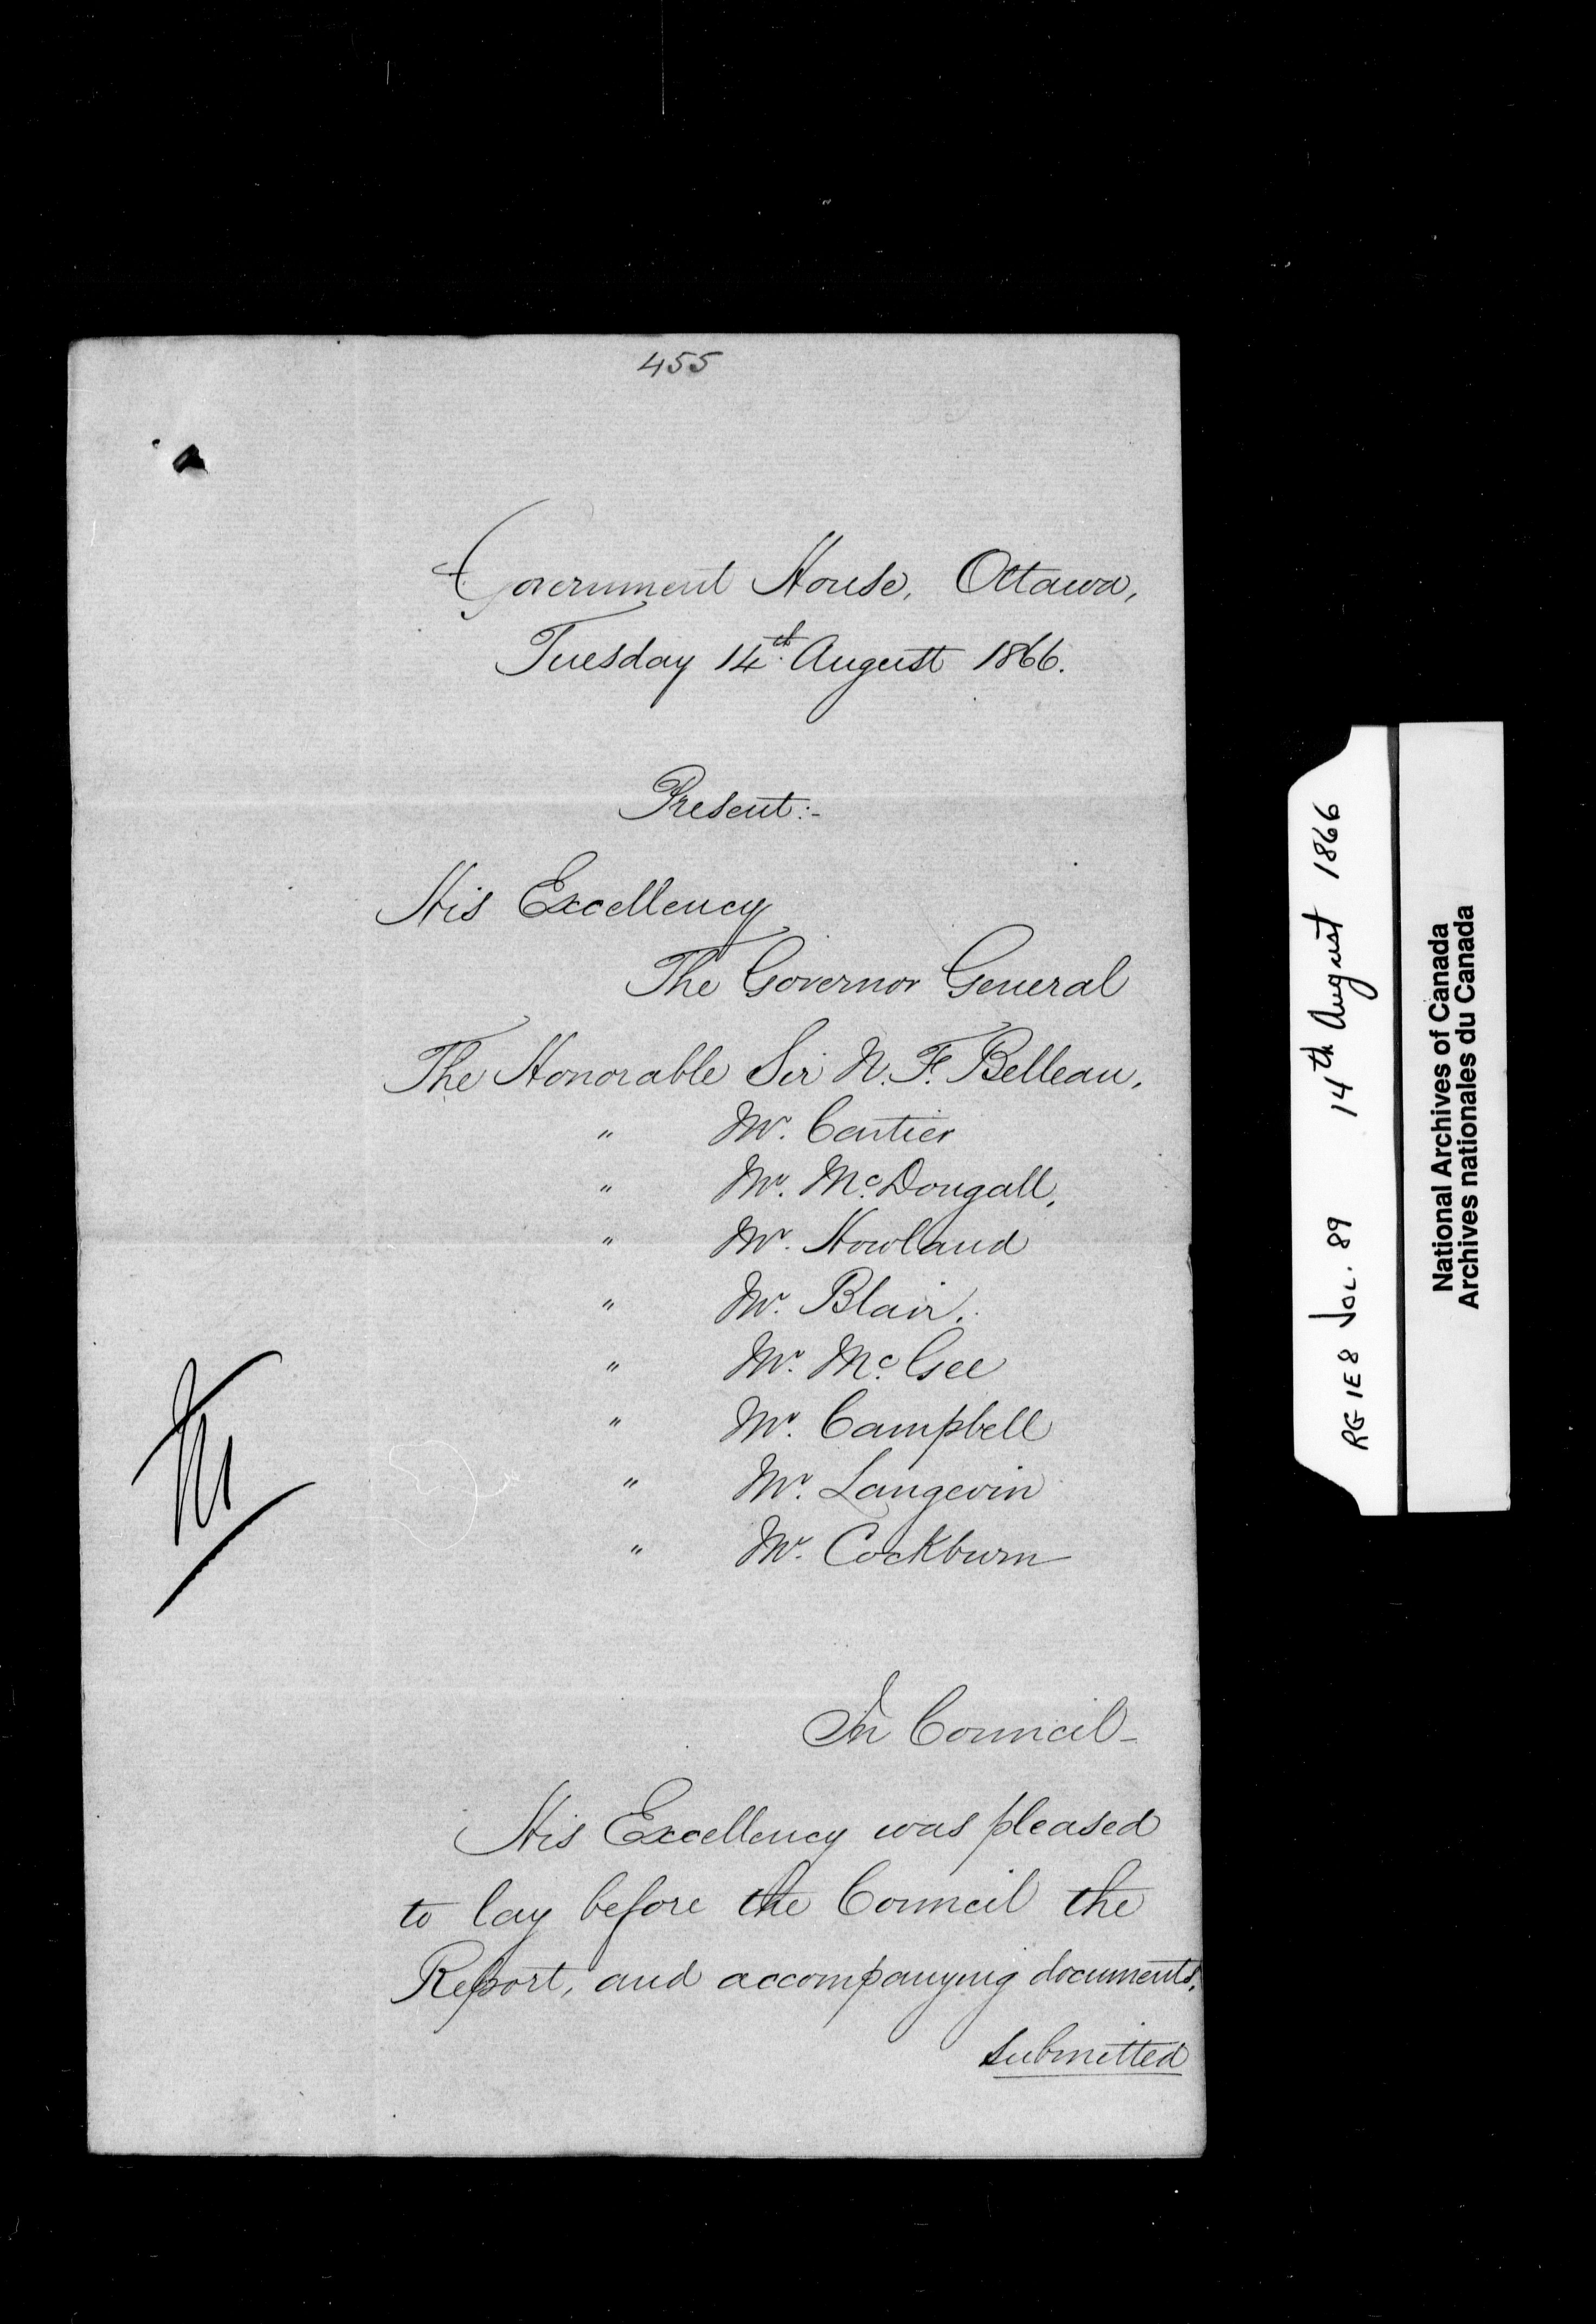 455
Government House, Ottawa,
Tuesday 14th August 1866.
Present:-
His Excellency
The Governor General
The Honorable Sir N. F. Belleau,
" Mr. Cartier
" Mr. McDougall,
" Mr. Howland
" Mr. Blair.
" Mr. McGee
" Mr. Campbell
" Mr. Langevin
" Mr. Cockburn
In Council-
His Excellency was pleased
to lay before the Council the
Report, and accompanying documents,
submitted
RG 1E8 VOL. 89 14th August 1866
National Archives of Canada
Archives nationales du Canada